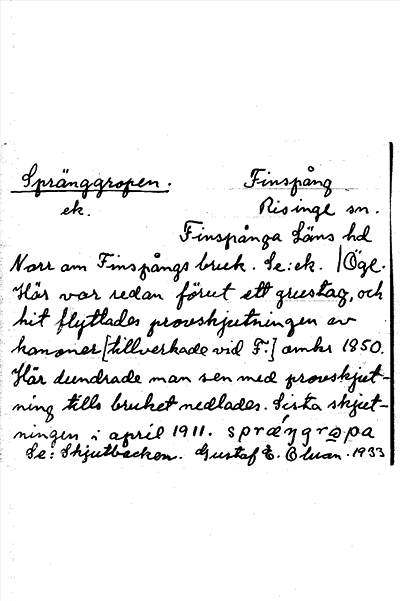 Spränggropen. Finspång
ek. Risinge sn.
Finspånga Läns hd
Norr om Finspångs bruk. Se: ek. Ögl.
Här var redan förut ett grustag, och
hit flyttades provskjutningen av
kanoner [tillverkade vid F.] omkr 1850.
Här dundrade man sen med provskjut-
ning tills bruket nedlades. Sista skjut-
ningen i april 1911. sprǽŋgrɷpa
Se: Skjutbacken. Gustaf E. Olvan. 1933